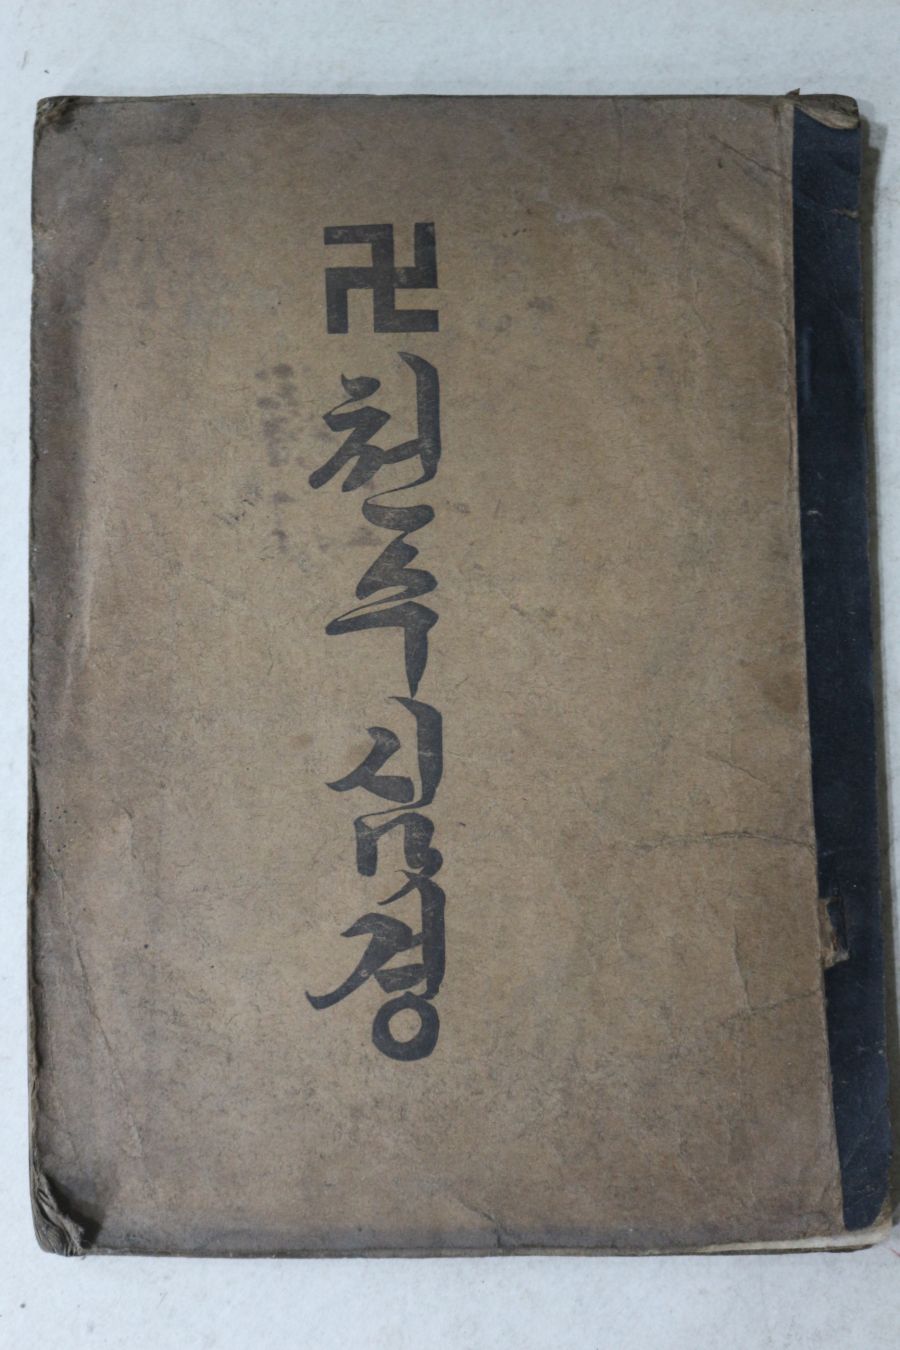 卍천수심경